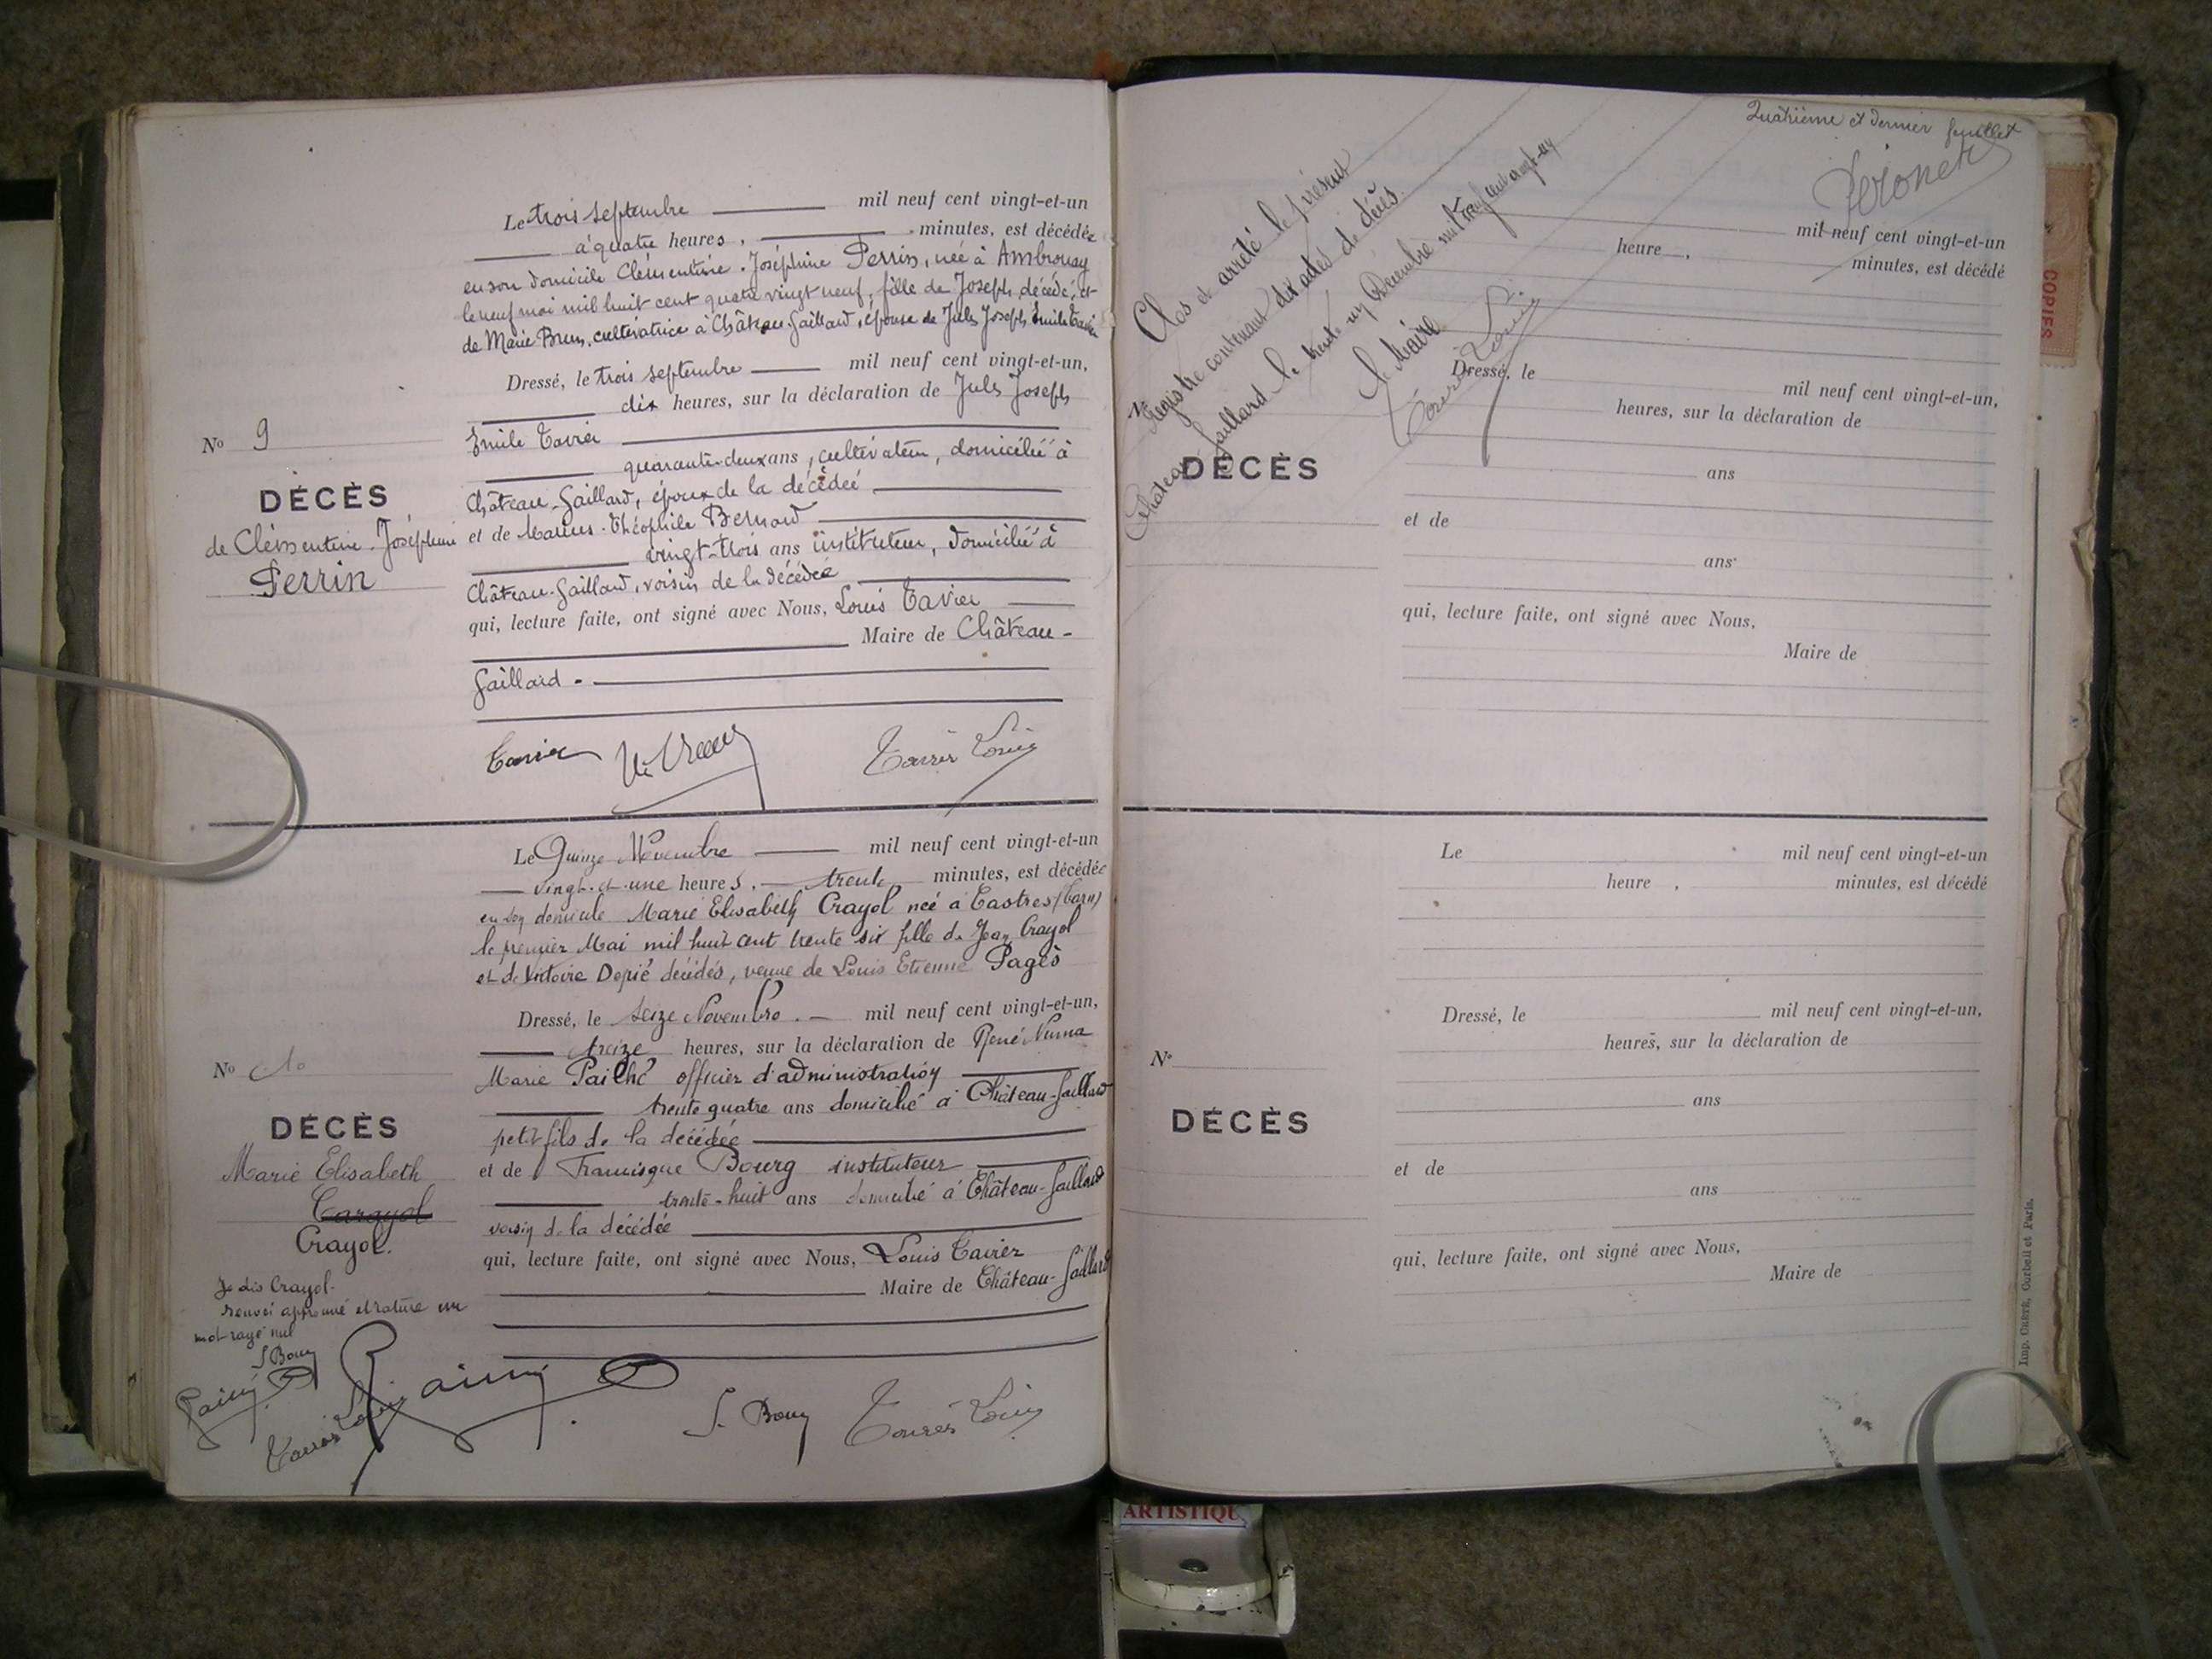 Le trois septembre mil neuf cent vingt-et-un
à quatre heures, minutes, est décédée
en son domicile Clémentine. Joséphine Perrin, née à Ambronay
le neuf mai mil huit cent quatre vingt neuf, fille de Joseph, décédé, et
de Marie Brun, cultivatrice à Château-Gaillard, épouse de Jules Joseph Emile Tavier
Dressé, le trois septembre mil neuf cent vingt-et-un,
dix heures, sur la déclaration de Jules Joseph
Emile Tavier
quarante-deux ans, cultivateur, domicilié à
Château-Gaillard, époux de la décédée
et de Marius-Théophile Bernard
vingt-trois ans instituteur, domicilié à
Château-Gaillard, voisin de la décédée
qui, lecture faite, ont signé avec Nous, Louis Tavier
Maire de Château-
Gaillard.
No 9
DÉCÈS
de Clémentine-Joséphine
Perrin
Tavier
Tavier Louis
Le Quinze Novembre mil neuf cent vingt-et-un
vingt-et-une heures, trente minutes, est décédée
en son domicile Marie Elisabeth Crayol née à Castres (Tarn)
le premier Mai mil huit cent trente six fille de Jean Crayol
et de Victoire décédés, veuve de Louis Etienne Pagès
Dressé, le seize Novembre mil neuf cent vingt-et-un,
treize heures, sur la déclaration de René Numa
Marie Pailhé officier d'administration
trente quatre ans domicilié à Château-Gaillard
petit fils de la décédée
et de Francisque Bourg instituteur
trente-huit ans domicilié à Château-Gaillard
voisin de la décédée
qui, lecture faite, ont signé avec Nous, Louis Tavier
Maire de Château-Gaillard
No 10
DÉCÈS
Marie Elisabeth
Carayol
Crayol.
Je dis Crayol.
renvoi approuvé et rature un
mot rayé nul
Tavier Louis
Tavier Louis
Quatrième et dernier feuillet
Clos et arrêté le présent
Registre contenant dix actes de décès
Château-Gaillard le trente un Décembre mil neuf cent vingt-un
Le Maire
Tavier Louis
mil neuf cent vingt-et-un
heure , minutes, est décédé
Dressé, le mil neuf cent vingt-et-un,
heures, sur la déclaration de
ans
et de
ans
qui, lecture faite, ont signé avec Nous,
Maire de
DÉCÈS
COPIES
Le mil neuf cent vingt-et-un
heure , minutes, est décédé
Dressé, le mil neuf cent vingt-et-un,
heures, sur la déclaration de
ans
et de
ans
qui, lecture faite, ont signé avec Nous,
Maire de
No
DÉCÈS
Imp. CRÉTÉ, Corbeil et Paris.
ARTISTIQU